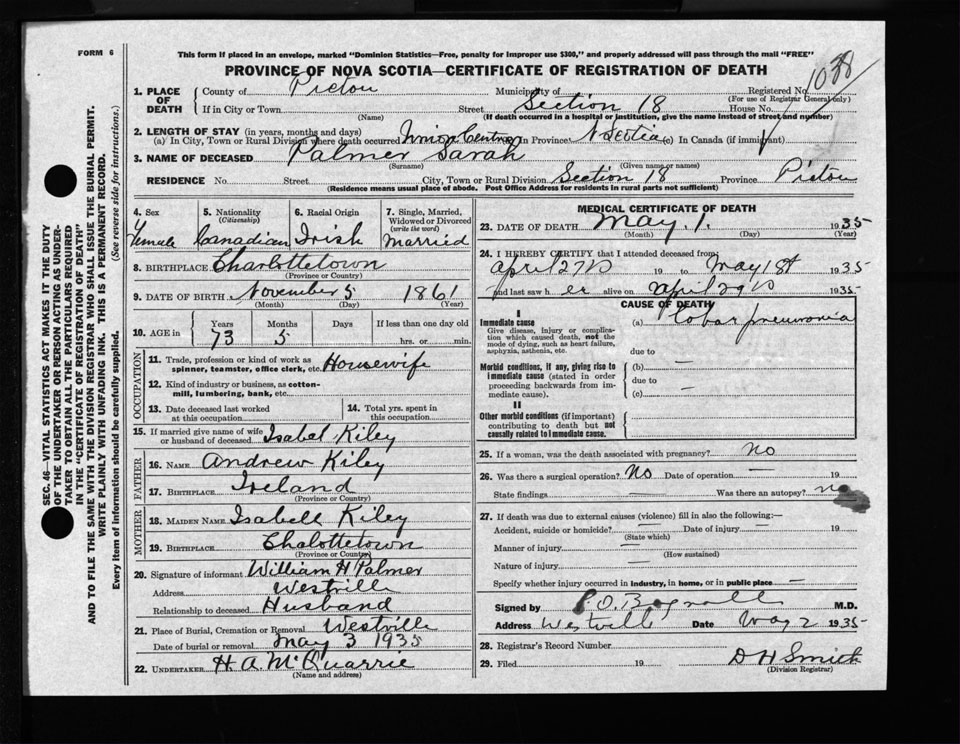 FORM 6
This form if placed in an envelope, marked "Dominion Statistics—Free, penalty for improper use $300," and properly addressed will pass through the mail "FREE"
PROVINCE OF NOVA SCOTIA—CERTIFICATE OF REGISTRATION OF DEATH
SEC. 46—VITAL STATISTICS ACT MAKES IT THE DUTY
OF THE UNDERTAKER OR PERSON ACTING AS UNDER-
TAKER TO OBTAIN ALL THE PARTICULARS REQUIRED
IN THE "CERTIFICATE OF REGISTRATION OF DEATH"
AND TO FILE THE SAME WITH THE DIVISION REGISTRAR WHO SHALL ISSUE THE BURIAL PERMIT.
WRITE PLAINLY WITH UNFADING INK. THIS IS A PERMANENT RECORD.
Every item of information should be carefully supplied. (See reverse side for instructions.)
1. PLACE OF DEATH
County of Pictou Municipality of Registered No. 1038
(For use of Registrar General only)
If in City or Town Street Section 18 House No.
(Name) (If death occurred in a hospital or institution, give the name instead of street and number)
2. LENGTH OF STAY (in years, months and days)
(a) In City, Town or Rural Division where death occurred Union Centre (b) in Province N Scotia (c) In Canada (if immigrant)
3. NAME OF DECEASED Palmer Sarah
(Surname) (Given name or names)
RESIDENCE No. Street City, Town or Rural Division Section 18 Province Pictou
(Residence means usual place of abode. Post Office Address for residents in rural parts not sufficient)
4. Sex Female
5. Nationality (Citizenship) Canadian
6. Racial Origin Irish
7. Single, Married, Widowed or Divorced (write the word) Married
8. BIRTHPLACE Charlottetown
(Province or Country)
9. DATE OF BIRTH November 5 1861
(Month) (Day) (Year)
10. AGE in Years Months Days If less than one day old
73 5 hrs. or min.
OCCUPATION
11. Trade, profession or kind of work as
spinner, teamster, office clerk, etc. Housewife
12. Kind of industry or business, as cotton-
mill, lumbering, bank, etc.
13. Date deceased last worked at this occupation
14. Total yrs. spent in this occupation
15. If married give name of wife
or husband of deceased Isabel Kiley
FATHER
16. NAME Andrew Kiley
17. BIRTHPLACE Ireland
(Province or Country)
MOTHER
18. MAIDEN NAME Isabell Kiley
19. BIRTHPLACE Chalottetown
(Province or Country)
20. Signature of informant William H Palmer
Address Westville
Relationship to deceased Husband
21. Place of Burial, Cremation or Removal Westville
Date of burial or removal May 3 1935
22. UNDERTAKER H. A McQuarrie
(Name and address)
MEDICAL CERTIFICATE OF DEATH
23. DATE OF DEATH May 1. 1935
(Month) (Day) (Year)
24. I HEREBY CERTIFY that I attended deceased from:
April 27th 19 to May 1st 1935
and last saw her alive on April 29th 1935
CAUSE OF DEATH
I
Immediate cause (a) Lobar pneumonia
Give disease, injury or complica-
tion which caused death, not the
mode of dying, such as heart failure,
asphyxia, asthenia, etc.
due to
Morbid conditions, if any, giving rise to
immediate cause (stated in order
proceeding backwards from im-
mediate cause).
(b) —
due to —
(c)
II
Other morbid conditions (if important)
contributing to death but not
causally related to immediate cause.
25. If a woman, was the death associated with pregnancy? No
26. Was there a surgical operation? No Date of operation — 19
State findings — Was there an autopsy? no
27. If death was due to external causes (violence) fill in also the following:—
Accident, suicide or homicide? — Date of injury — 19
(State which)
Manner of injury —
(How sustained)
Nature of injury —
Specify whether injury occurred in industry, in home, or in public place —
Signed by M.D.
Address Westville Date May 2 1935
28. Registrar's Record Number
29. Filed 19 D H Smith
(Division Registrar)